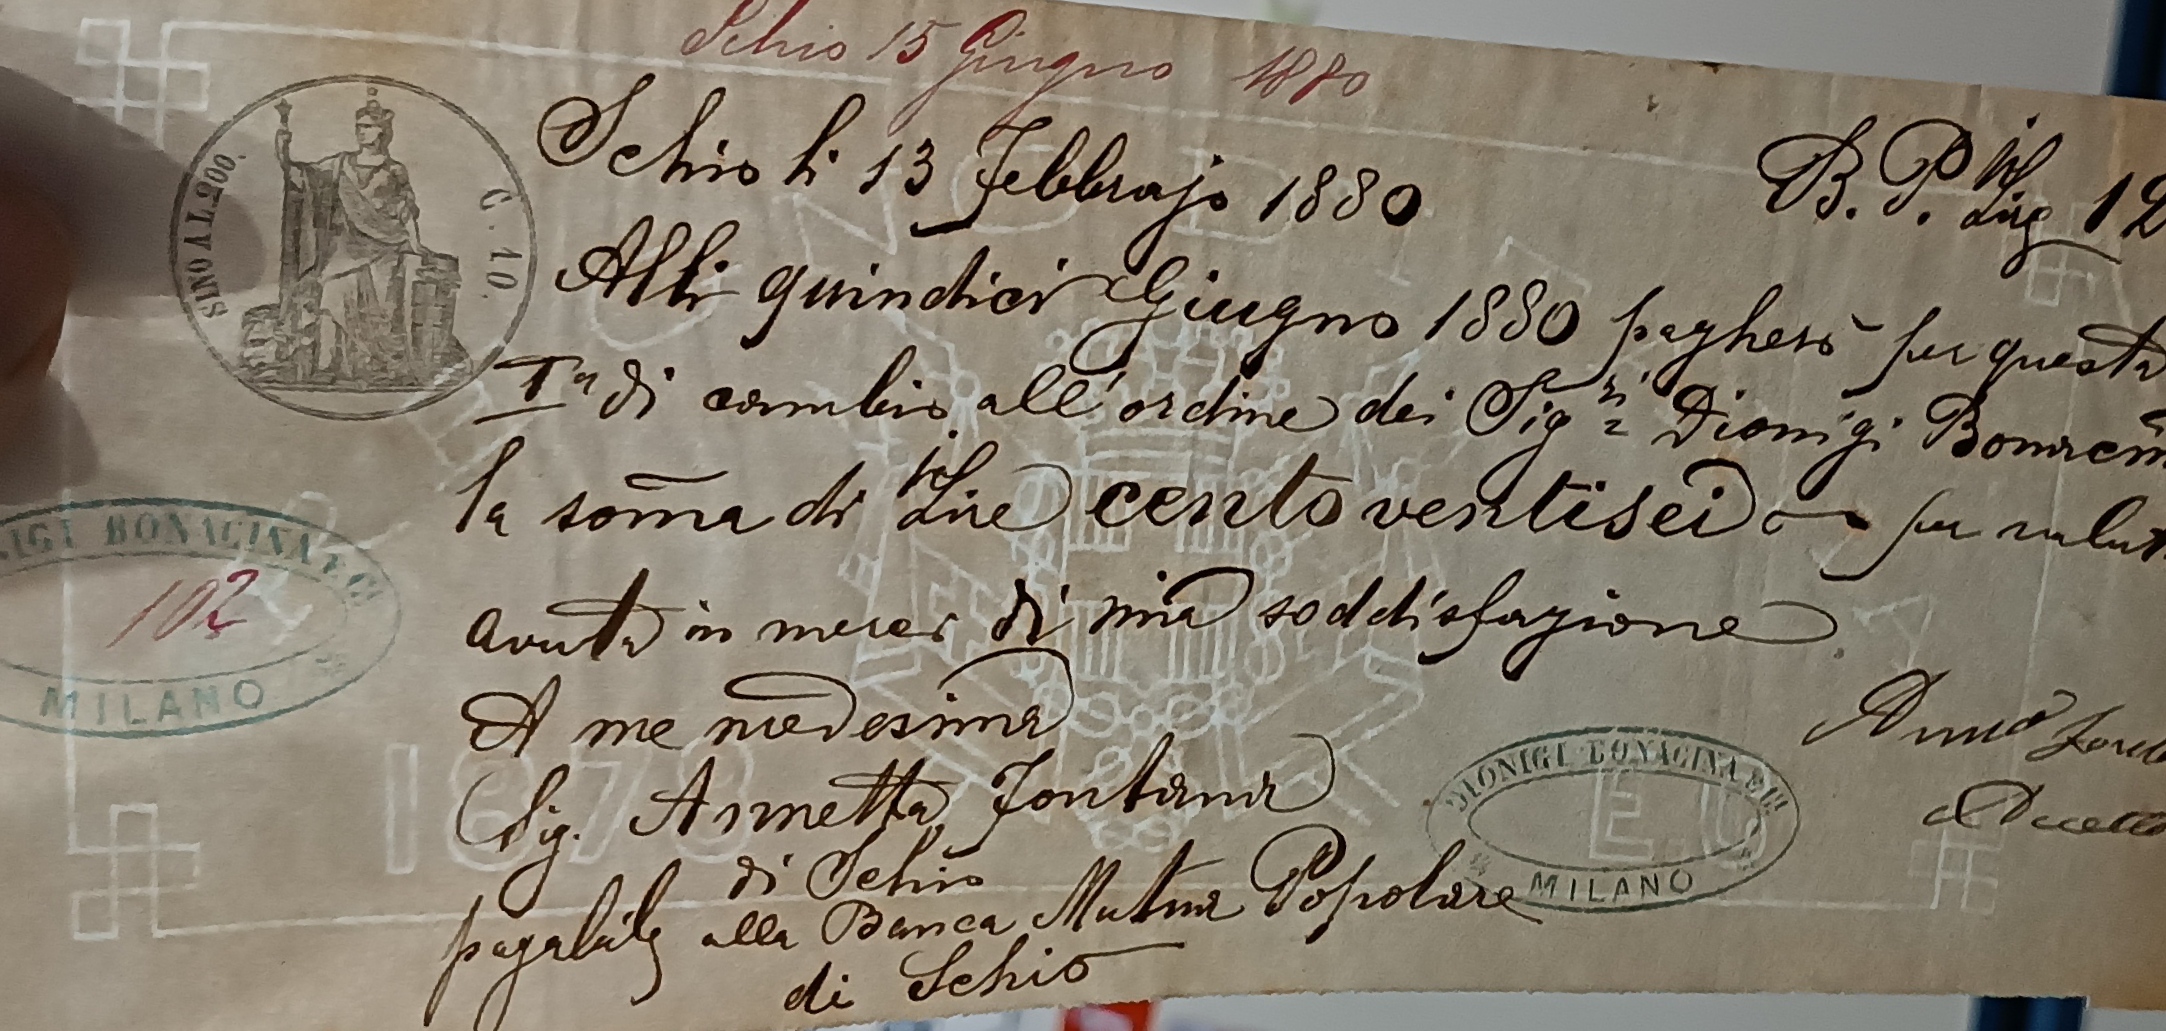 Schio 15 Giugno 1880
Schio li 13 Febbrajo 1880 B. P. Lire 12
SINO A L.200.
C. 10.
Alli quindici Giugno 1880 pagherò per questa
Iª di cambio all'ordine dei Sig.ri Dionigi Bonacin
la som̄a di Lire centoventisei per valut
avuta in merci di mia soddisfazione
DIONIGI BONACINA E
102
MILANO
A me medesima
Sig. Annetta Fontana
di Schio
pagabile alla Banca Mutua Popolare
di Schio
DIONIGI BONACINA E
MILANO
1878